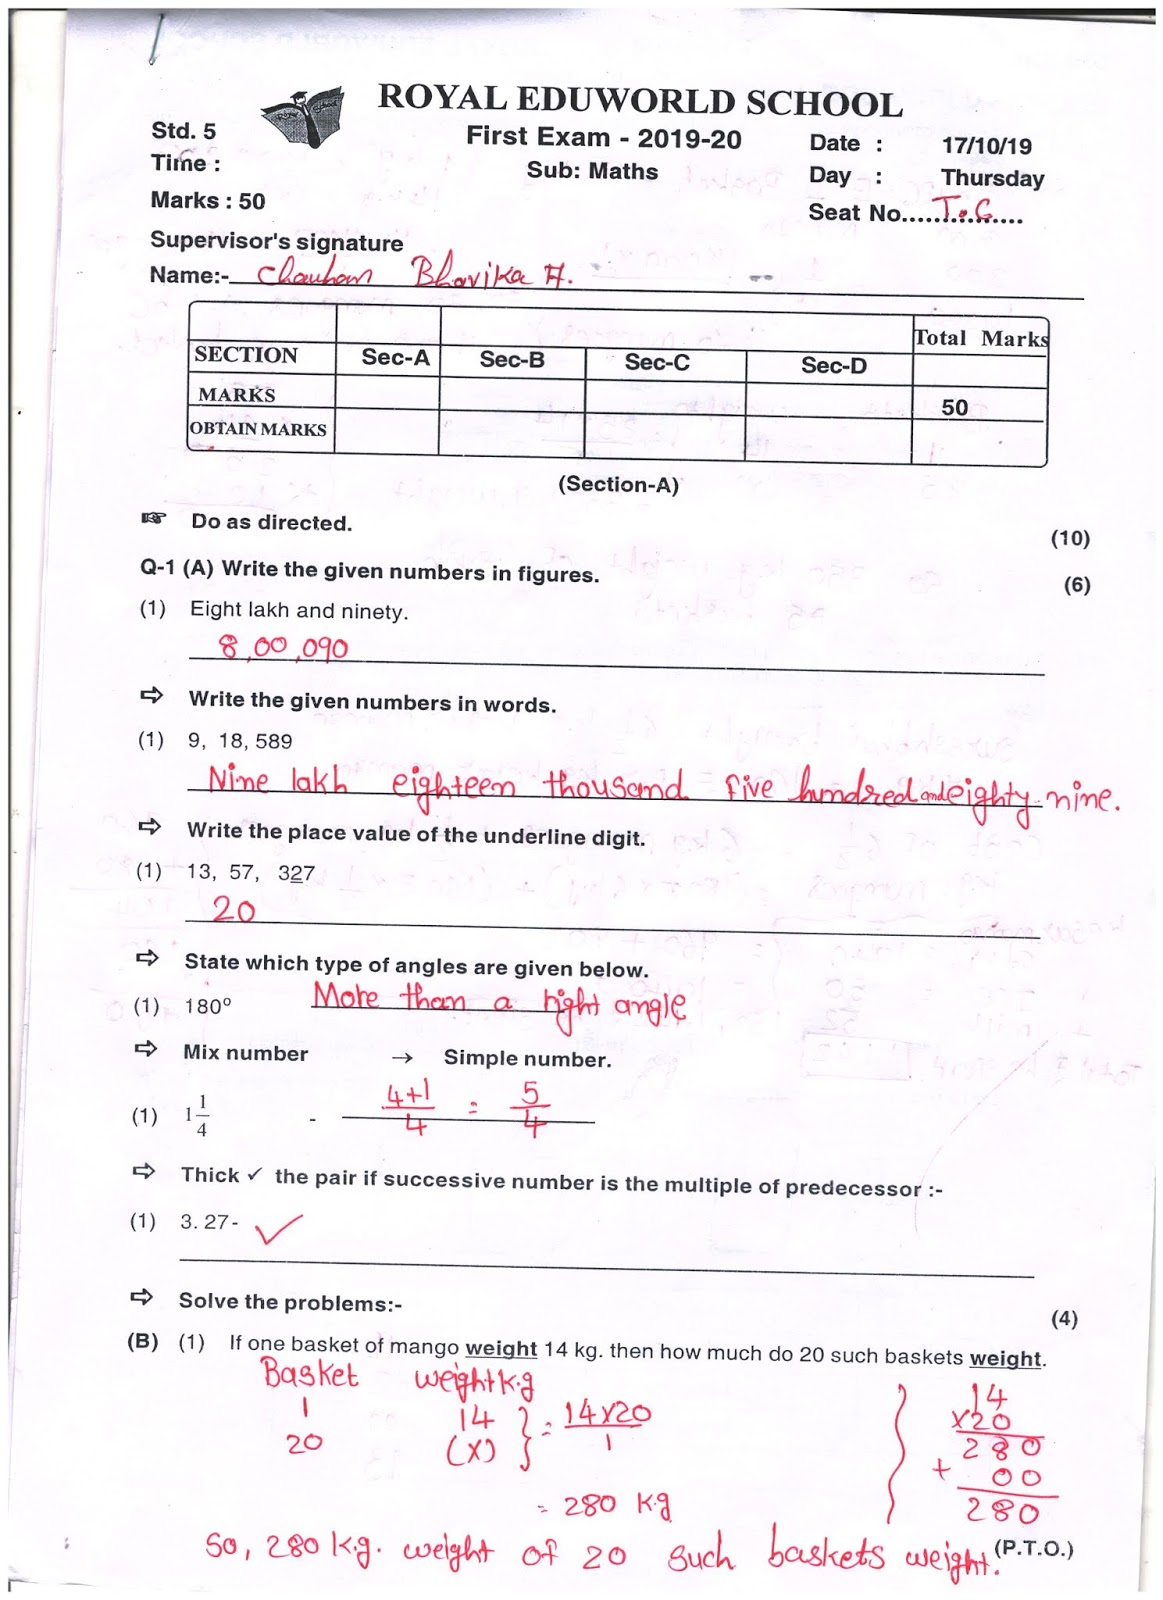 ROYAL EDUWORLD SCHOOL
Std. 5
First Exam - 2019-20
Date : 17/10/19
Time :
Sub: Maths
Day : Thursday
Marks : 50
Seat No..... T.C ......
Supervisor's signature
Name:- Chauhan Bhavika A.
Total Marks
SECTION Sec-A Sec-B Sec-C Sec-D
MARKS 50
OBTAIN MARKS
(Section-A)
☞ Do as directed. (10)
Q-1 (A) Write the given numbers in figures. (6)
(1) Eight lakh and ninety.
8,00,090
⇨ Write the given numbers in words.
(1) 9, 18, 589
Nine lakh eighteen thousand five hundred and eighty-nine.
⇨ Write the place value of the underline digit.
(1) 13, 57, 327
20
⇨ State which type of angles are given below.
(1) 180° More than a right angle
⇨ Mix number → Simple number.
(1) 1 1/4 - 4+1/4 = 5/4
⇨ Thick ✓ the pair if successive number is the multiple of predecessor :-
(1) 3. 27- ✓
⇨ Solve the problems:- (4)
(B) (1) If one basket of mango weight 14 kg. then how much do 20 such baskets weight.
Basket weight k.g
1 14
20 (x) } = 14x20/1
= 280 k.g
14
x20
280
+ 00
280
So, 280 k.g. weight of 20 such baskets weight.
(P.T.O.)